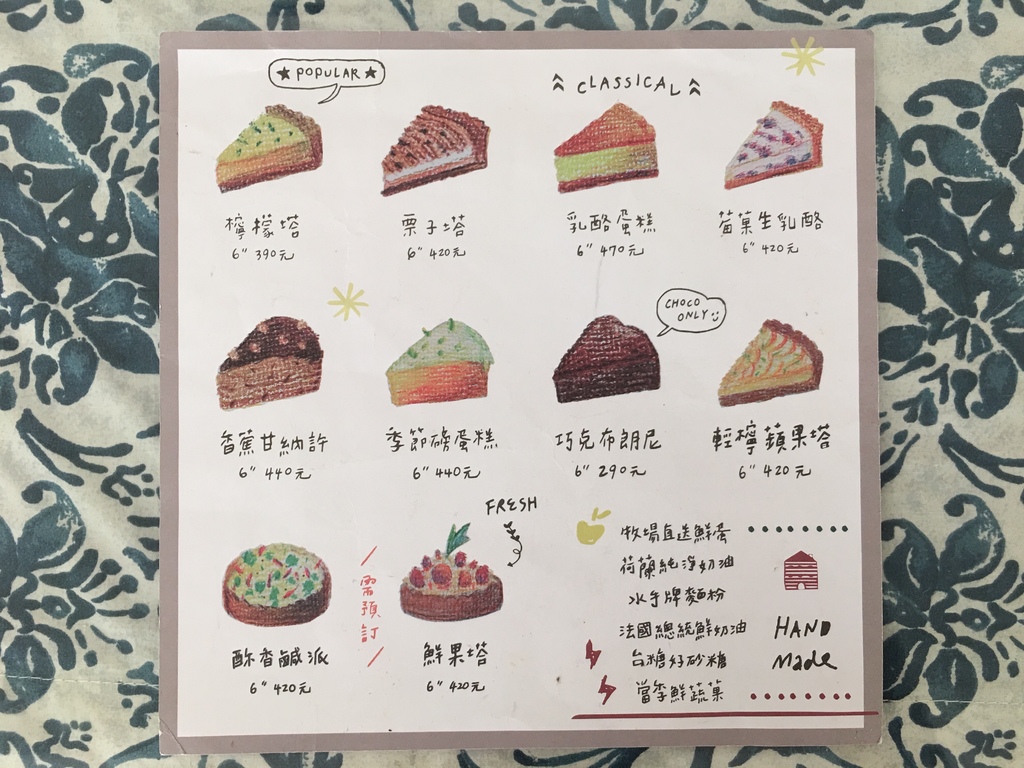 ★ POPULAR ★
CLASSICAL
檸檬塔
6" 390元
栗子塔
6" 420元
乳酪蛋糕
6" 470元
莓菓生乳酪
6" 420元
CHOCO
ONLY
香蕉甘納許
6" 440元
季節磅蛋糕
6" 440元
巧克布朗尼
6" 290元
輕檸蘋果塔
6" 420元
FRESH
酥香鹹派
6" 420元
需預訂
鮮果塔
6" 420元
牧場直送鮮蛋
荷蘭純淨奶油
水手牌麵粉
法國總統鮮奶油
台糖好砂糖
當季鮮蔬菓
HAND
Made